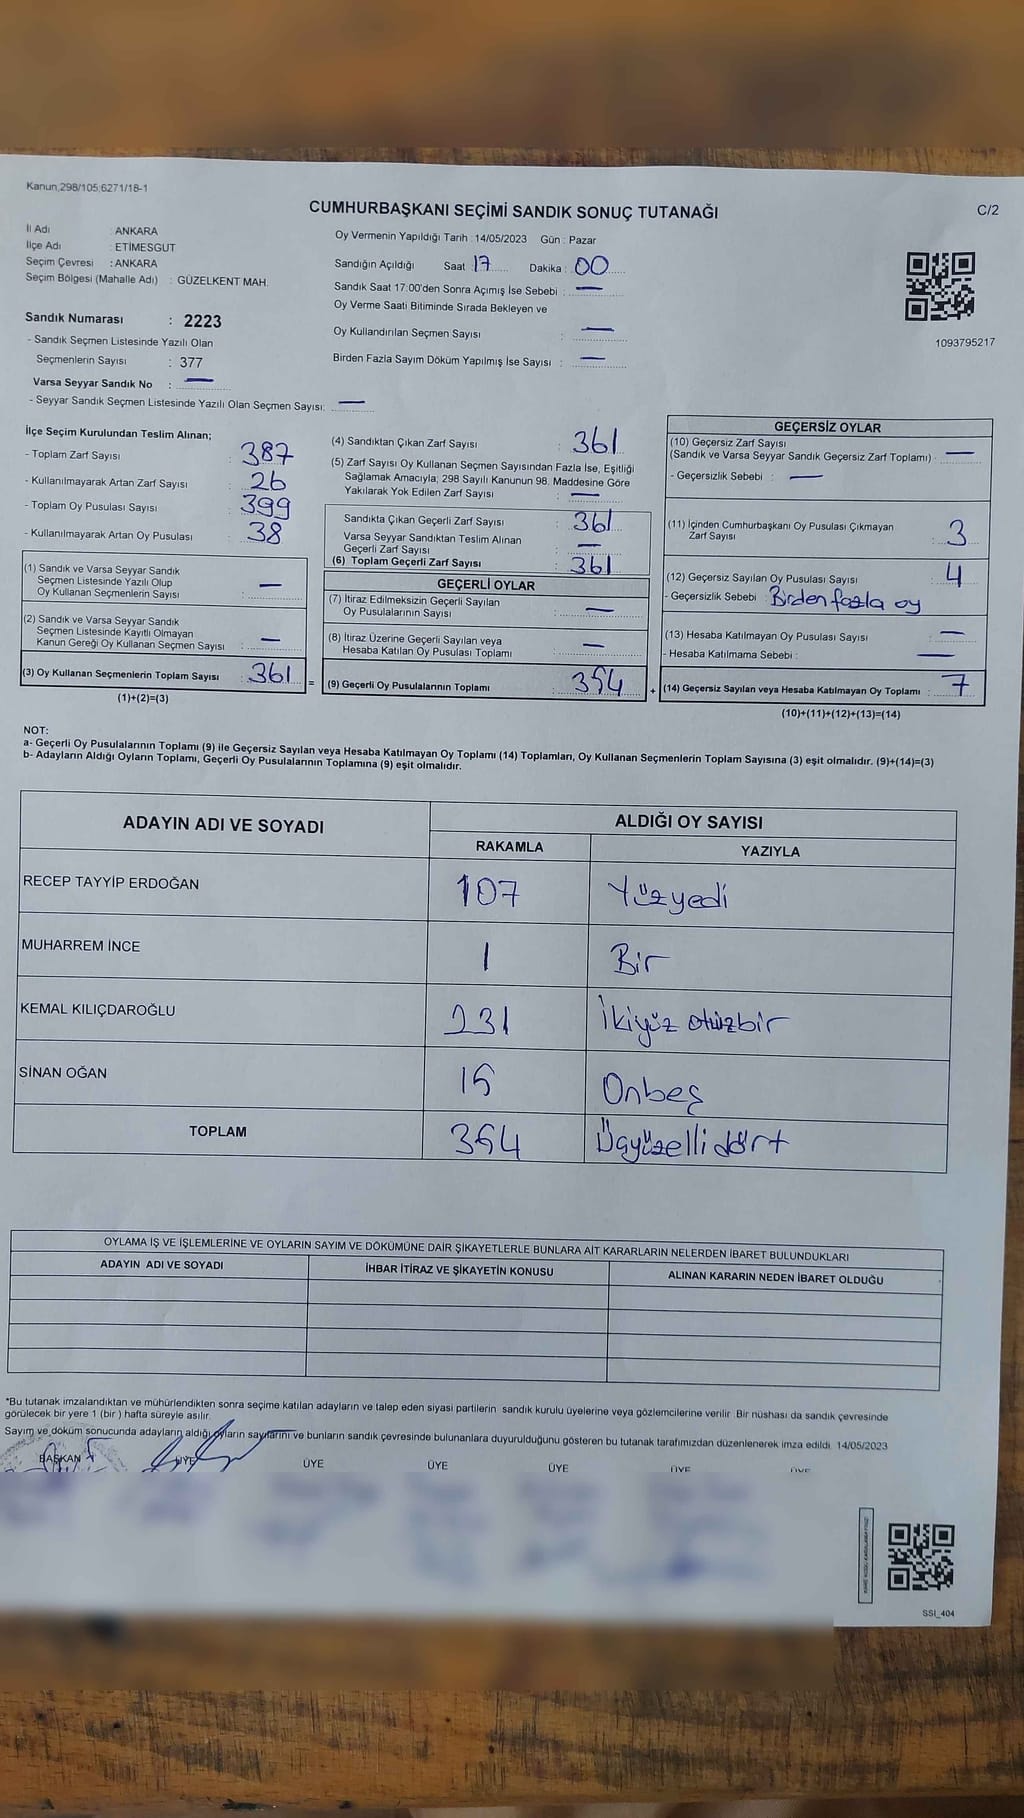 Kanun,298/105;6271/18-1
CUMHURBAŞKANI SEÇİMİ SANDIK SONUÇ TUTANAĞI
C/2
İl Adı : ANKARA
İlçe Adı : ETİMESGUT
Seçim Çevresi : ANKARA
Seçim Bölgesi (Mahalle Adı) : GÜZELKENT MAH.
Sandık Numarası : 2223
- Sandık Seçmen Listesinde Yazılı Olan
Seçmenlerin Sayısı : 377
Varsa Seyyar Sandık No : —
- Seyyar Sandık Seçmen Listesinde Yazılı Olan Seçmen Sayısı: —
Oy Vermenin Yapıldığı Tarih : 14/05/2023 Gün : Pazar
Sandığın Açıldığı Saat 17 Dakika : 00
Sandık Saat 17:00'den Sonra Açımış İse Sebebi : —
Oy Verme Saati Bitiminde Sırada Bekleyen ve
Oy Kullandırılan Seçmen Sayısı : —
Birden Fazla Sayım Döküm Yapılmış İse Sayısı : —
1093795217
İlçe Seçim Kurulundan Teslim Alınan;
- Toplam Zarf Sayısı : 387
- Kullanılmayarak Artan Zarf Sayısı : 26
- Toplam Oy Pusulası Sayısı : 399
- Kullanılmayarak Artan Oy Pusulası : 38
(1) Sandık ve Varsa Seyyar Sandık
Seçmen Listesinde Yazılı Olup
Oy Kullanan Seçmenlerin Sayısı : —
(2) Sandık ve Varsa Seyyar Sandık
Seçmen Listesinde Kayıtlı Olmayan
Kanun Gereği Oy Kullanan Seçmen Sayısı : —
(3) Oy Kullanan Seçmenlerin Toplam Sayısı : 361 =
(1)+(2)=(3)
(4) Sandıktan Çıkan Zarf Sayısı : 361
(5) Zarf Sayısı Oy Kullanan Seçmen Sayısından Fazla İse, Eşitliği
Sağlamak Amacıyla; 298 Sayılı Kanunun 98. Maddesine Göre
Yakılarak Yok Edilen Zarf Sayısı : —
Sandıkta Çıkan Geçerli Zarf Sayısı : 361
Varsa Seyyar Sandıktan Teslim Alınan
Geçerli Zarf Sayısı : —
(6) Toplam Geçerli Zarf Sayısı : 361
GEÇERLİ OYLAR
(7) İtiraz Edilmeksizin Geçerli Sayılan
Oy Pusulalarının Sayısı : —
(8) İtiraz Üzerine Geçerli Sayılan veya
Hesaba Katılan Oy Pusulası Toplamı : —
(9) Geçerli Oy Pusulalarının Toplamı : 354 +
GEÇERSİZ OYLAR
(10) Geçersiz Zarf Sayısı
(Sandık ve Varsa Seyyar Sandık Geçersiz Zarf Toplamı) : —
- Geçersizlik Sebebi : —
(11) İçinden Cumhurbaşkanı Oy Pusulası Çıkmayan
Zarf Sayısı : 3
(12) Geçersiz Sayılan Oy Pusulası Sayısı : 4
- Geçersizlik Sebebi : Birden fazla oy
(13) Hesaba Katılmayan Oy Pusulası Sayısı : —
- Hesaba Katılmama Sebebi : —
(14) Geçersiz Sayılan veya Hesaba Katılmayan Oy Toplamı : 7
(10)+(11)+(12)+(13)=(14)
NOT:
a- Geçerli Oy Pusulalarının Toplamı (9) ile Geçersiz Sayılan veya Hesaba Katılmayan Oy Toplamı (14) Toplamları, Oy Kullanan Seçmenlerin Toplam Sayısına (3) eşit olmalıdır. (9)+(14)=(3)
b- Adayların Aldığı Oyların Toplamı, Geçerli Oy Pusulalarının Toplamına (9) eşit olmalıdır.
ADAYIN ADI VE SOYADI ALDIĞI OY SAYISI
RAKAMLA YAZIYLA
RECEP TAYYİP ERDOĞAN 107 Yüzyedi
MUHARREM İNCE 1 Bir
KEMAL KILIÇDAROĞLU 231 İkiyüz otuzbir
SİNAN OĞAN 15 Onbeş
TOPLAM 354 Üçyüzelli dört
OYLAMA İŞ VE İŞLEMLERİNE VE OYLARIN SAYIM VE DÖKÜMÜNE DAİR ŞİKAYETLERLE BUNLARA AİT KARARLARIN NELERDEN İBARET BULUNDUKLARI
ADAYIN ADI VE SOYADI İHBAR İTİRAZ VE ŞİKAYETİN KONUSU ALINAN KARARIN NEDEN İBARET OLDUĞU
*Bu tutanak imzalandıktan ve mühürlendikten sonra seçime katılan adayların ve talep eden siyasi partilerin sandık kurulu üyelerine veya gözlemcilerine verilir. Bir nüshası da sandık çevresinde
görülecek bir yere 1 (bir) hafta süreyle asılır.
Sayım ve döküm sonucunda adayların aldığı oyların sayılarını ve bunların sandık çevresinde bulunanlara duyurulduğunu gösteren bu tutanak tarafımızdan düzenlenerek imza edildi. 14/05/2023
BAŞKAN ÜYE ÜYE ÜYE ÜYE ÜYE ÜYE
SSI_404